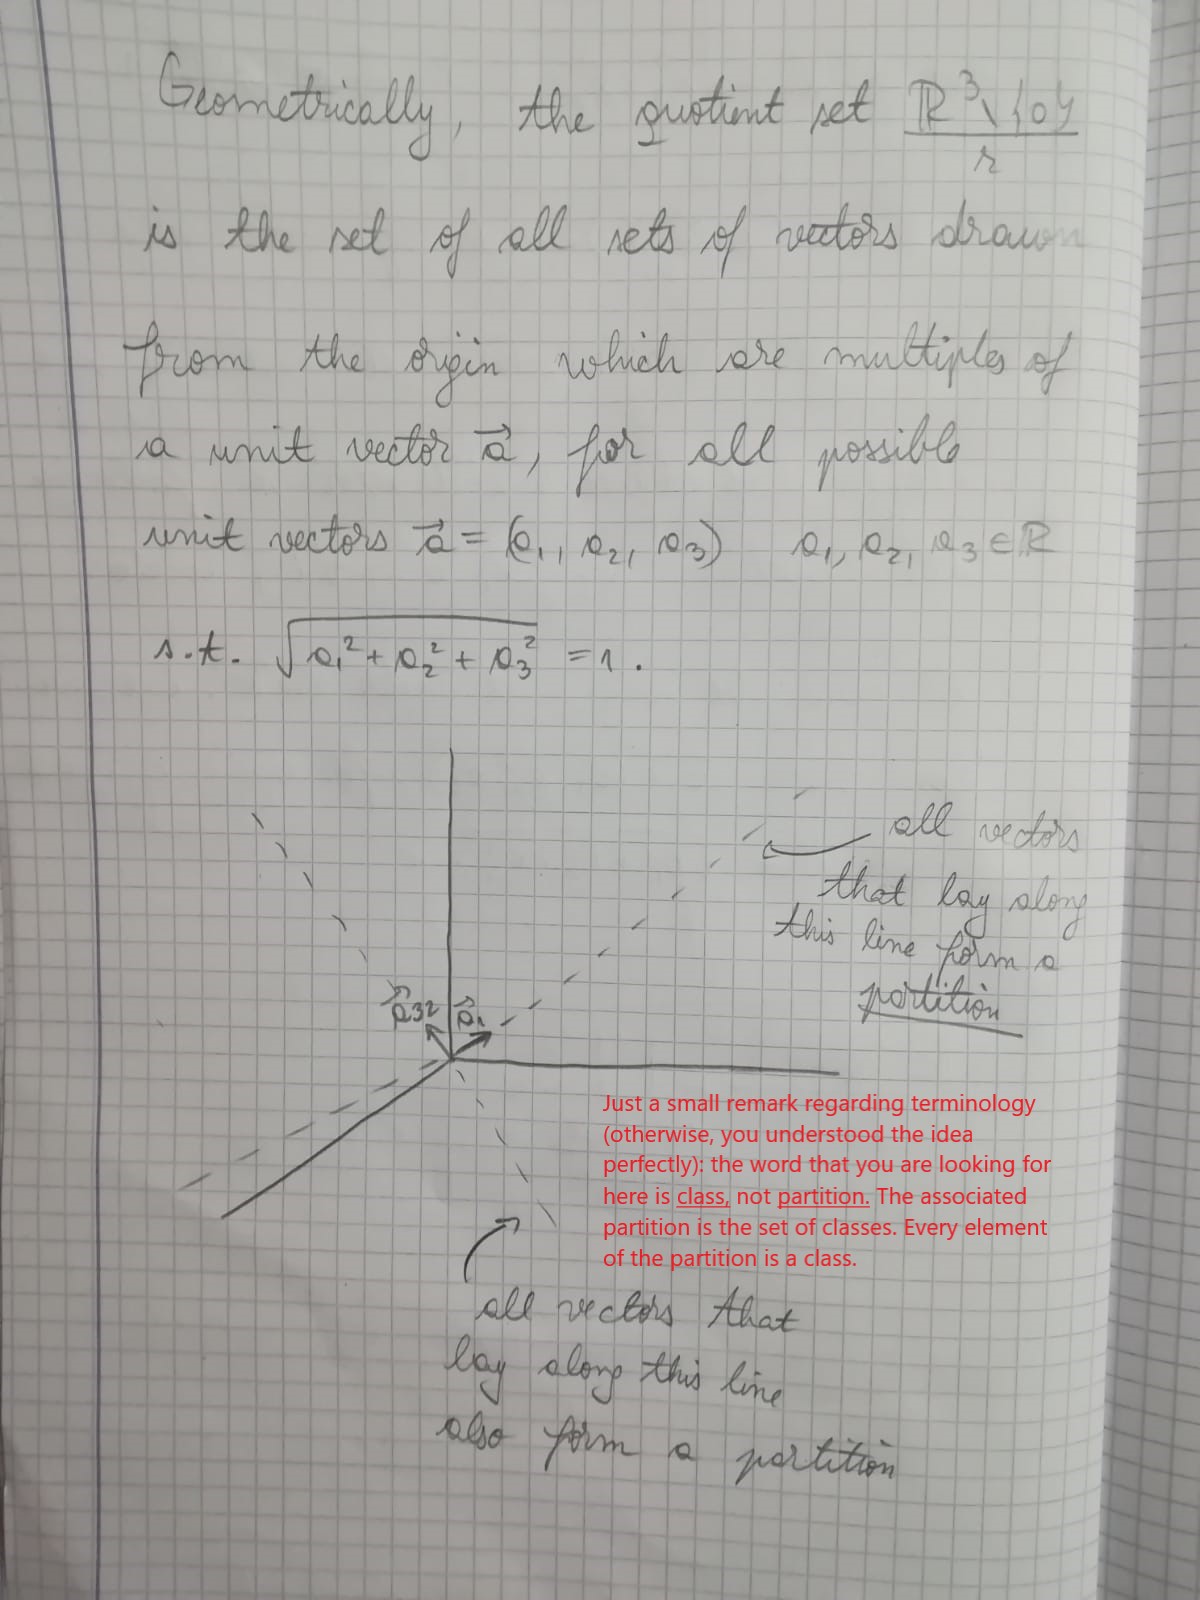 Geometrically, the quotient set ℝ³\{0}/r
is the set of all sets of vectors drawn
from the origin which are multiples of
a unit vector a⃗, for all possible
unit vectors a⃗ = (a₁, a₂, a₃) a₁, a₂, a₃ ∈ ℝ
s.t. √(a₁² + a₂² + a₃²) = 1.
all vectors
that lay along
this line form a
partition
a⃗₁
Just a small remark regarding terminology
(otherwise, you understood the idea
perfectly): the word that you are looking for
here is class, not partition. The associated
partition is the set of classes. Every element
of the partition is a class.
all vectors that
lay along this line
also form a partition